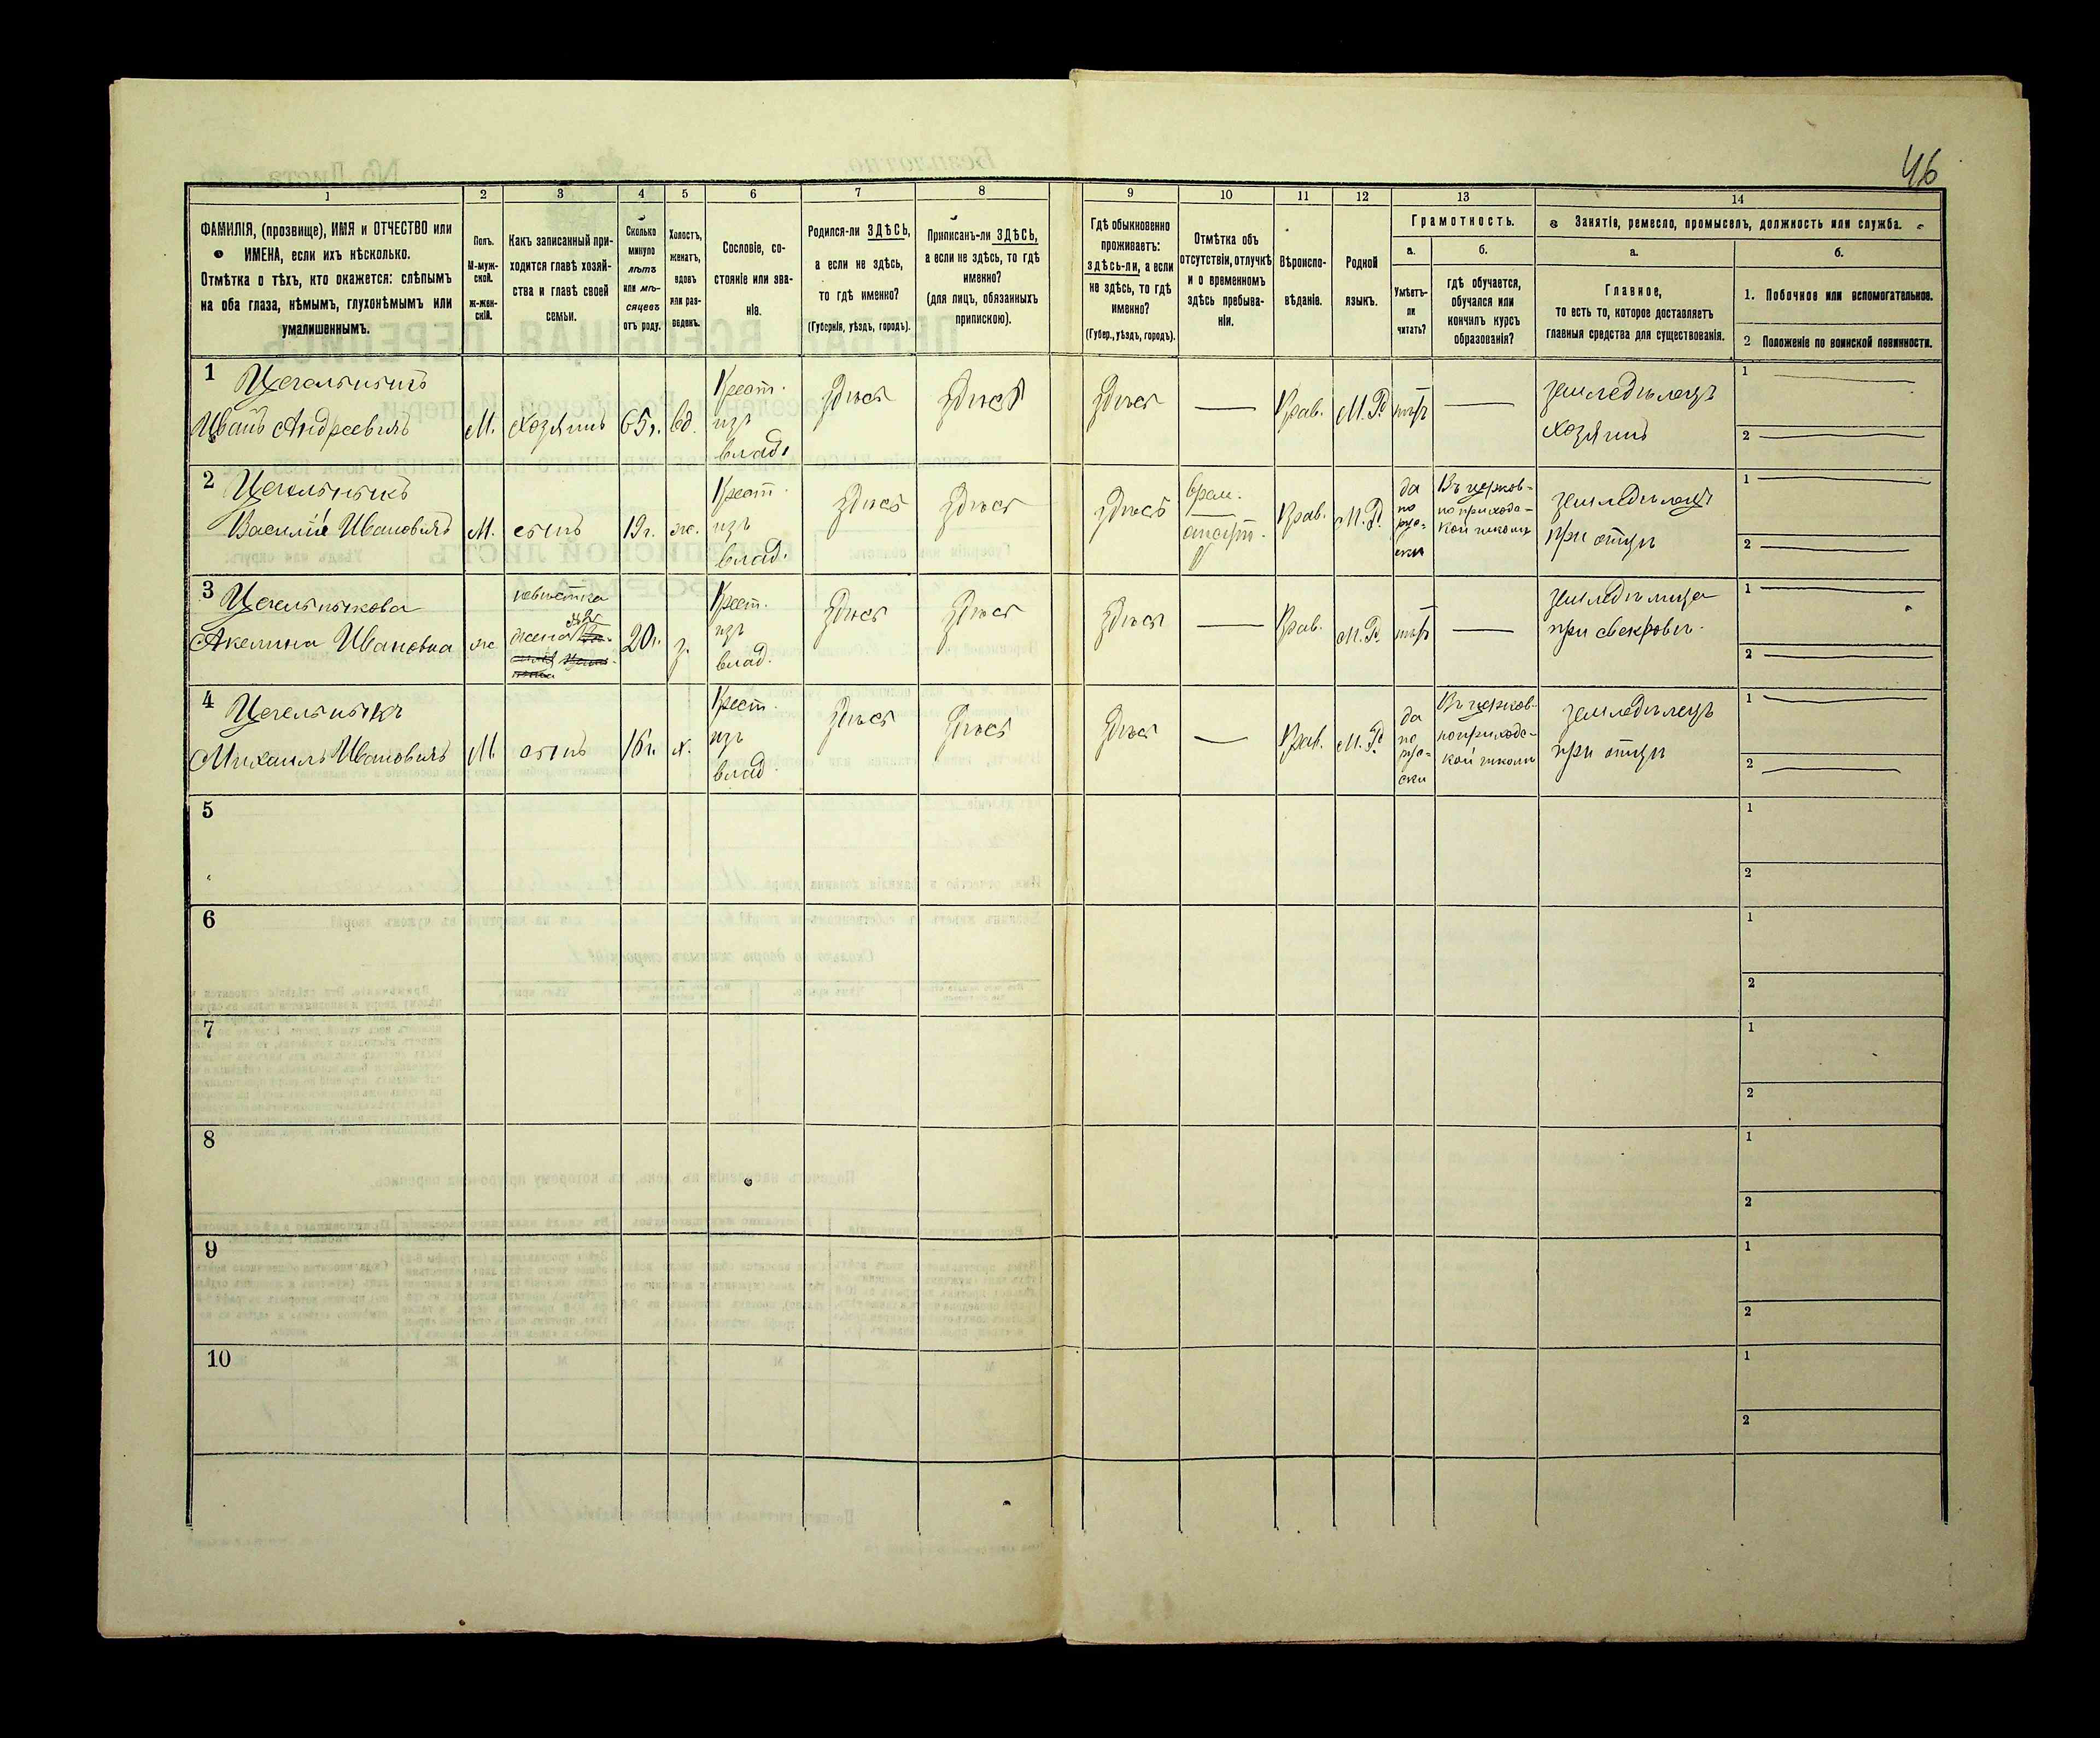 46
1 2 3 4 5 6 7 8 9 10 11 12 13 14
ФАМИЛІЯ, (прозвище), ИМЯ и ОТЧЕСТВО или
ИМЕНА, если ихъ нѣсколько.
Отмѣтка о тѣхъ, кто окажется: слѣпымъ
на оба глаза, нѣмымъ, глухонѣмымъ или
умалишеннымъ.
Полъ.
М-муж-
ской.
Ж-жен-
скій.
Какъ записанный при-
ходится главѣ хозяй-
ства и главѣ своей
семьи.
Сколько
минуло
лѣтъ
или мѣ-
сяцевъ
отъ роду.
Холостъ,
женатъ,
вдовъ
или раз-
веденъ.
Сословіе, со-
стояніе или зва-
ніе.
Родился-ли ЗДѢСЬ,
а если не здѣсь,
то гдѣ именно?
(Губернія, уѣздъ, городъ).
Приписанъ-ли ЗДѢСЬ,
а если не здѣсь, то гдѣ
именно?
(для лицъ, обязанныхъ
припискою).
Гдѣ обыкновенно
проживаетъ:
здѣсь-ли, а если
не здѣсь, то гдѣ
именно?
(Губер., уѣздъ, городъ).
Отмѣтка объ
отсутствіи, отлучкѣ
и о временномъ
здѣсь пребыва-
ніи.
Вѣроиспо-
вѣданіе.
Родной
языкъ.
Грамотность.
а.
Умѣетъ-
ли
читать?
б.
гдѣ обучается,
обучался или
кончилъ курсъ
образованія?
Занятіе, ремесло, промыселъ, должность или служба.
а.
Главное,
то есть то, которое доставляетъ
главныя средства для существованія.
б.
1. Побочное или вспомогательное.
2 Положеніе по воинской повинности.
1 Цегельникъ
Иванъ Андреевичъ
М.
Хозяинъ
65 г.
вд.
Крест.
изъ
влад.
Здѣсь
Здѣсь
Здѣсь
Прав.
М. Р.
нѣтъ
земледѣлецъ
хозяинъ
1
2
2 Цегельникъ
Василій Ивановичъ
М.
сынъ
19 г.
ж.
Крест.
изъ
влад.
Здѣсь
Здѣсь
Здѣсь
врем.
отсут.
Прав.
М. Р.
да
по
рус-
ски
Въ церков-
но приход-
кой школѣ
земледѣлецъ
при отцѣ
1
2
3 Цегельникова
Акелина Ивановна
ж.
невѣстка
жена
20 г.
з.
Крест.
изъ
влад.
Здѣсь
Здѣсь
Здѣсь
Прав.
М. Р.
нѣтъ
при свекровѣ.
1
2
4 Цегельникъ
Михаилъ Ивановичъ
М.
сынъ
16 г.
х.
Крест.
изъ
влад.
Здѣсь
Здѣсь
Здѣсь
Прав.
М. Р.
да
по
рус-
ски
Въ церков-
но приход-
кой школѣ
земледѣлецъ
при отцѣ
1
2
5
1
2
6
1
2
7
1
2
8
1
2
9
1
2
10
1
2